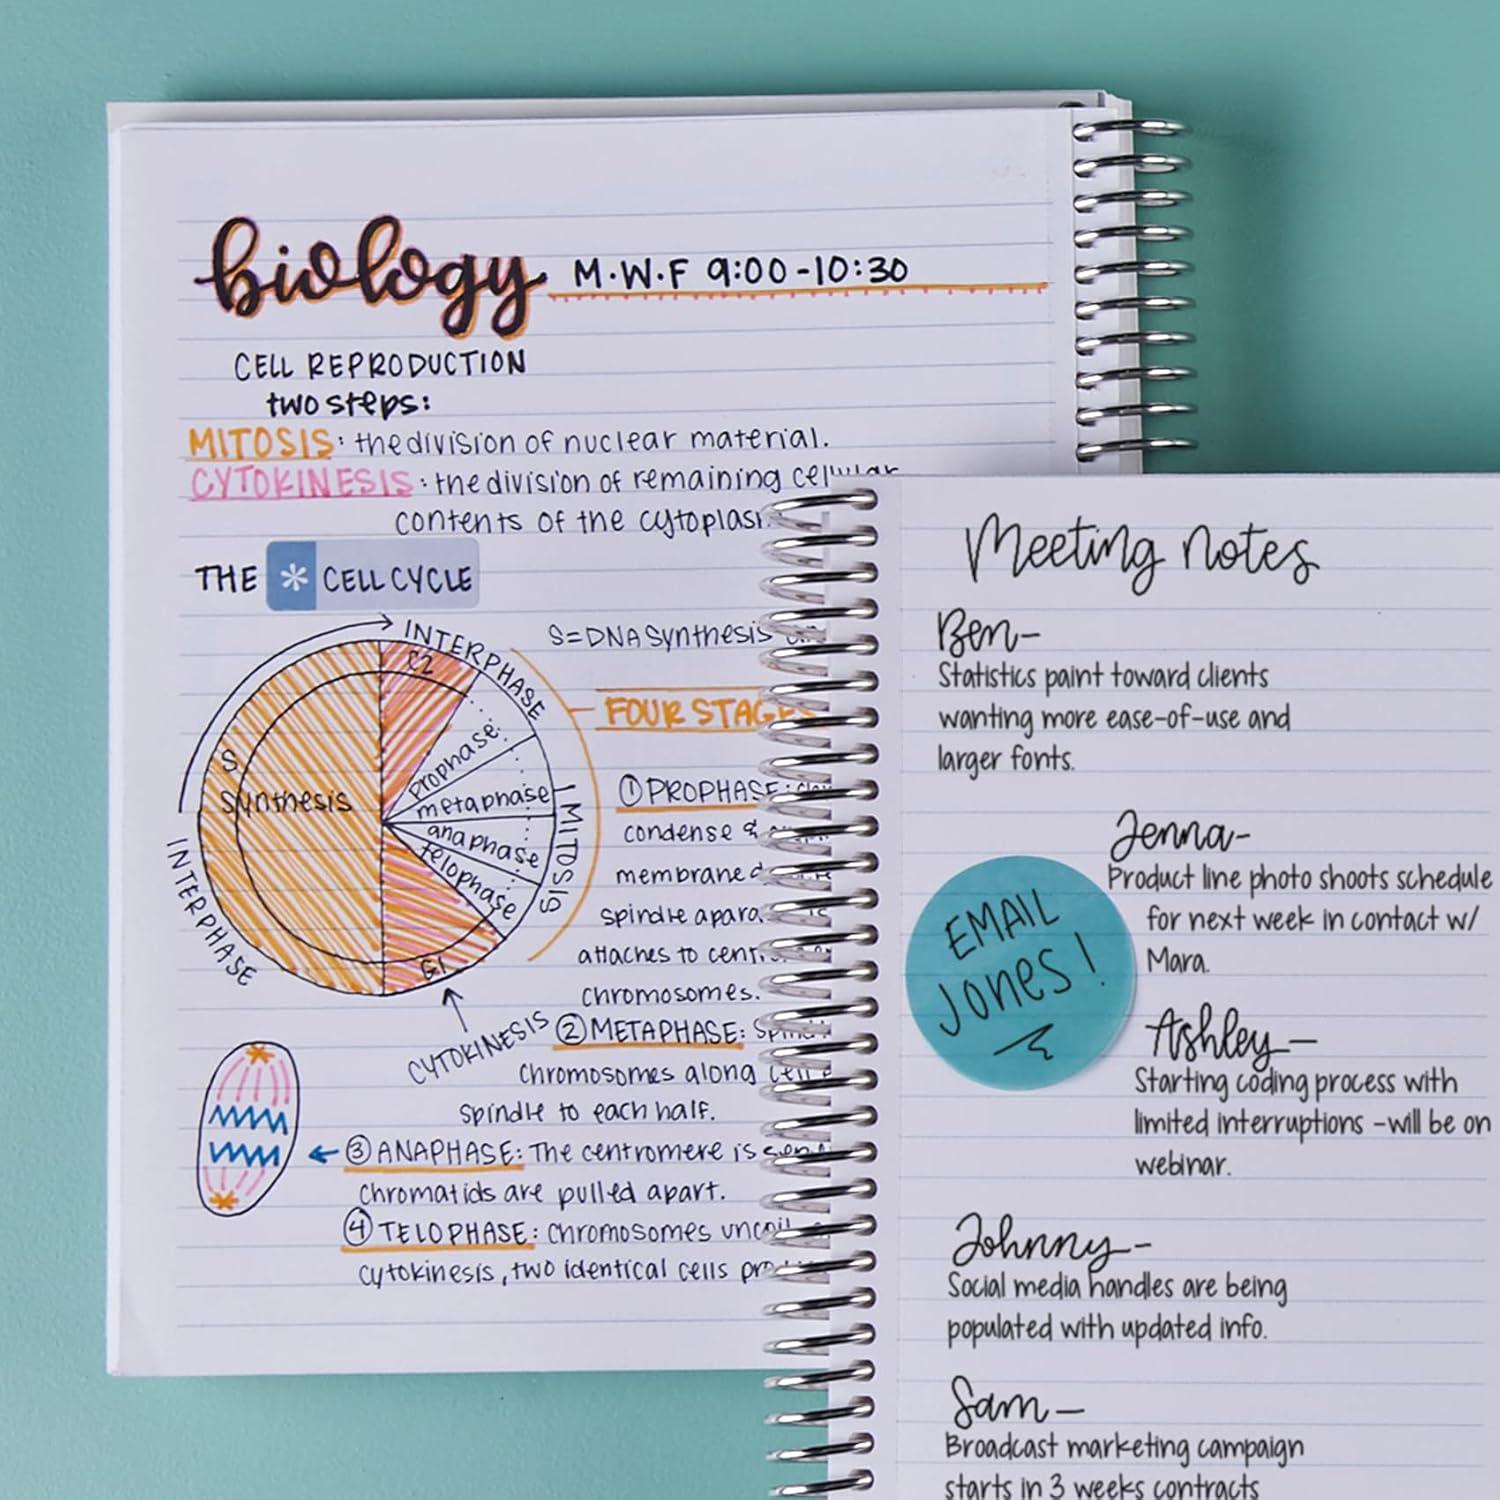 biology M·W·F 9:00-10:30
CELL REPRODUCTION
two steps:
MITOSIS: the division of nuclear material.
CYTOKINESIS: the division of remaining cellular
contents of the
THE * CELL CYCLE
INTERPHASE
S=DNA Synthesis
G2
FOUR
S
Synthesis
prophase
metaphase
anaphase
telophase
MITOSIS
INTERPHASE
G1
CYTOKINESIS
① PROPHASE:
condense &
membrane
spindle
attaches to
chromosomes.
② METAPHASE:
chromosomes along
spindle to each half.
③ ANAPHASE: The centromere is
chromatids are pulled apart.
④ TELOPHASE: chromosomes
cytokinesis, two identical cells
Meeting notes
Ben-
Statistics paint toward clients
wanting more ease-of-use and
larger fonts.
Jenna-
Product line photo shoots schedule
for next week in contact w/
Mara.
EMAIL
JONES!
Ashley-
Starting coding process with
limited interruptions -will be on
webinar.
Johnny-
Social media handles are being
populated with updated info.
Sam-
Broadcast marketing campaign
starts in 3 weeks contracts